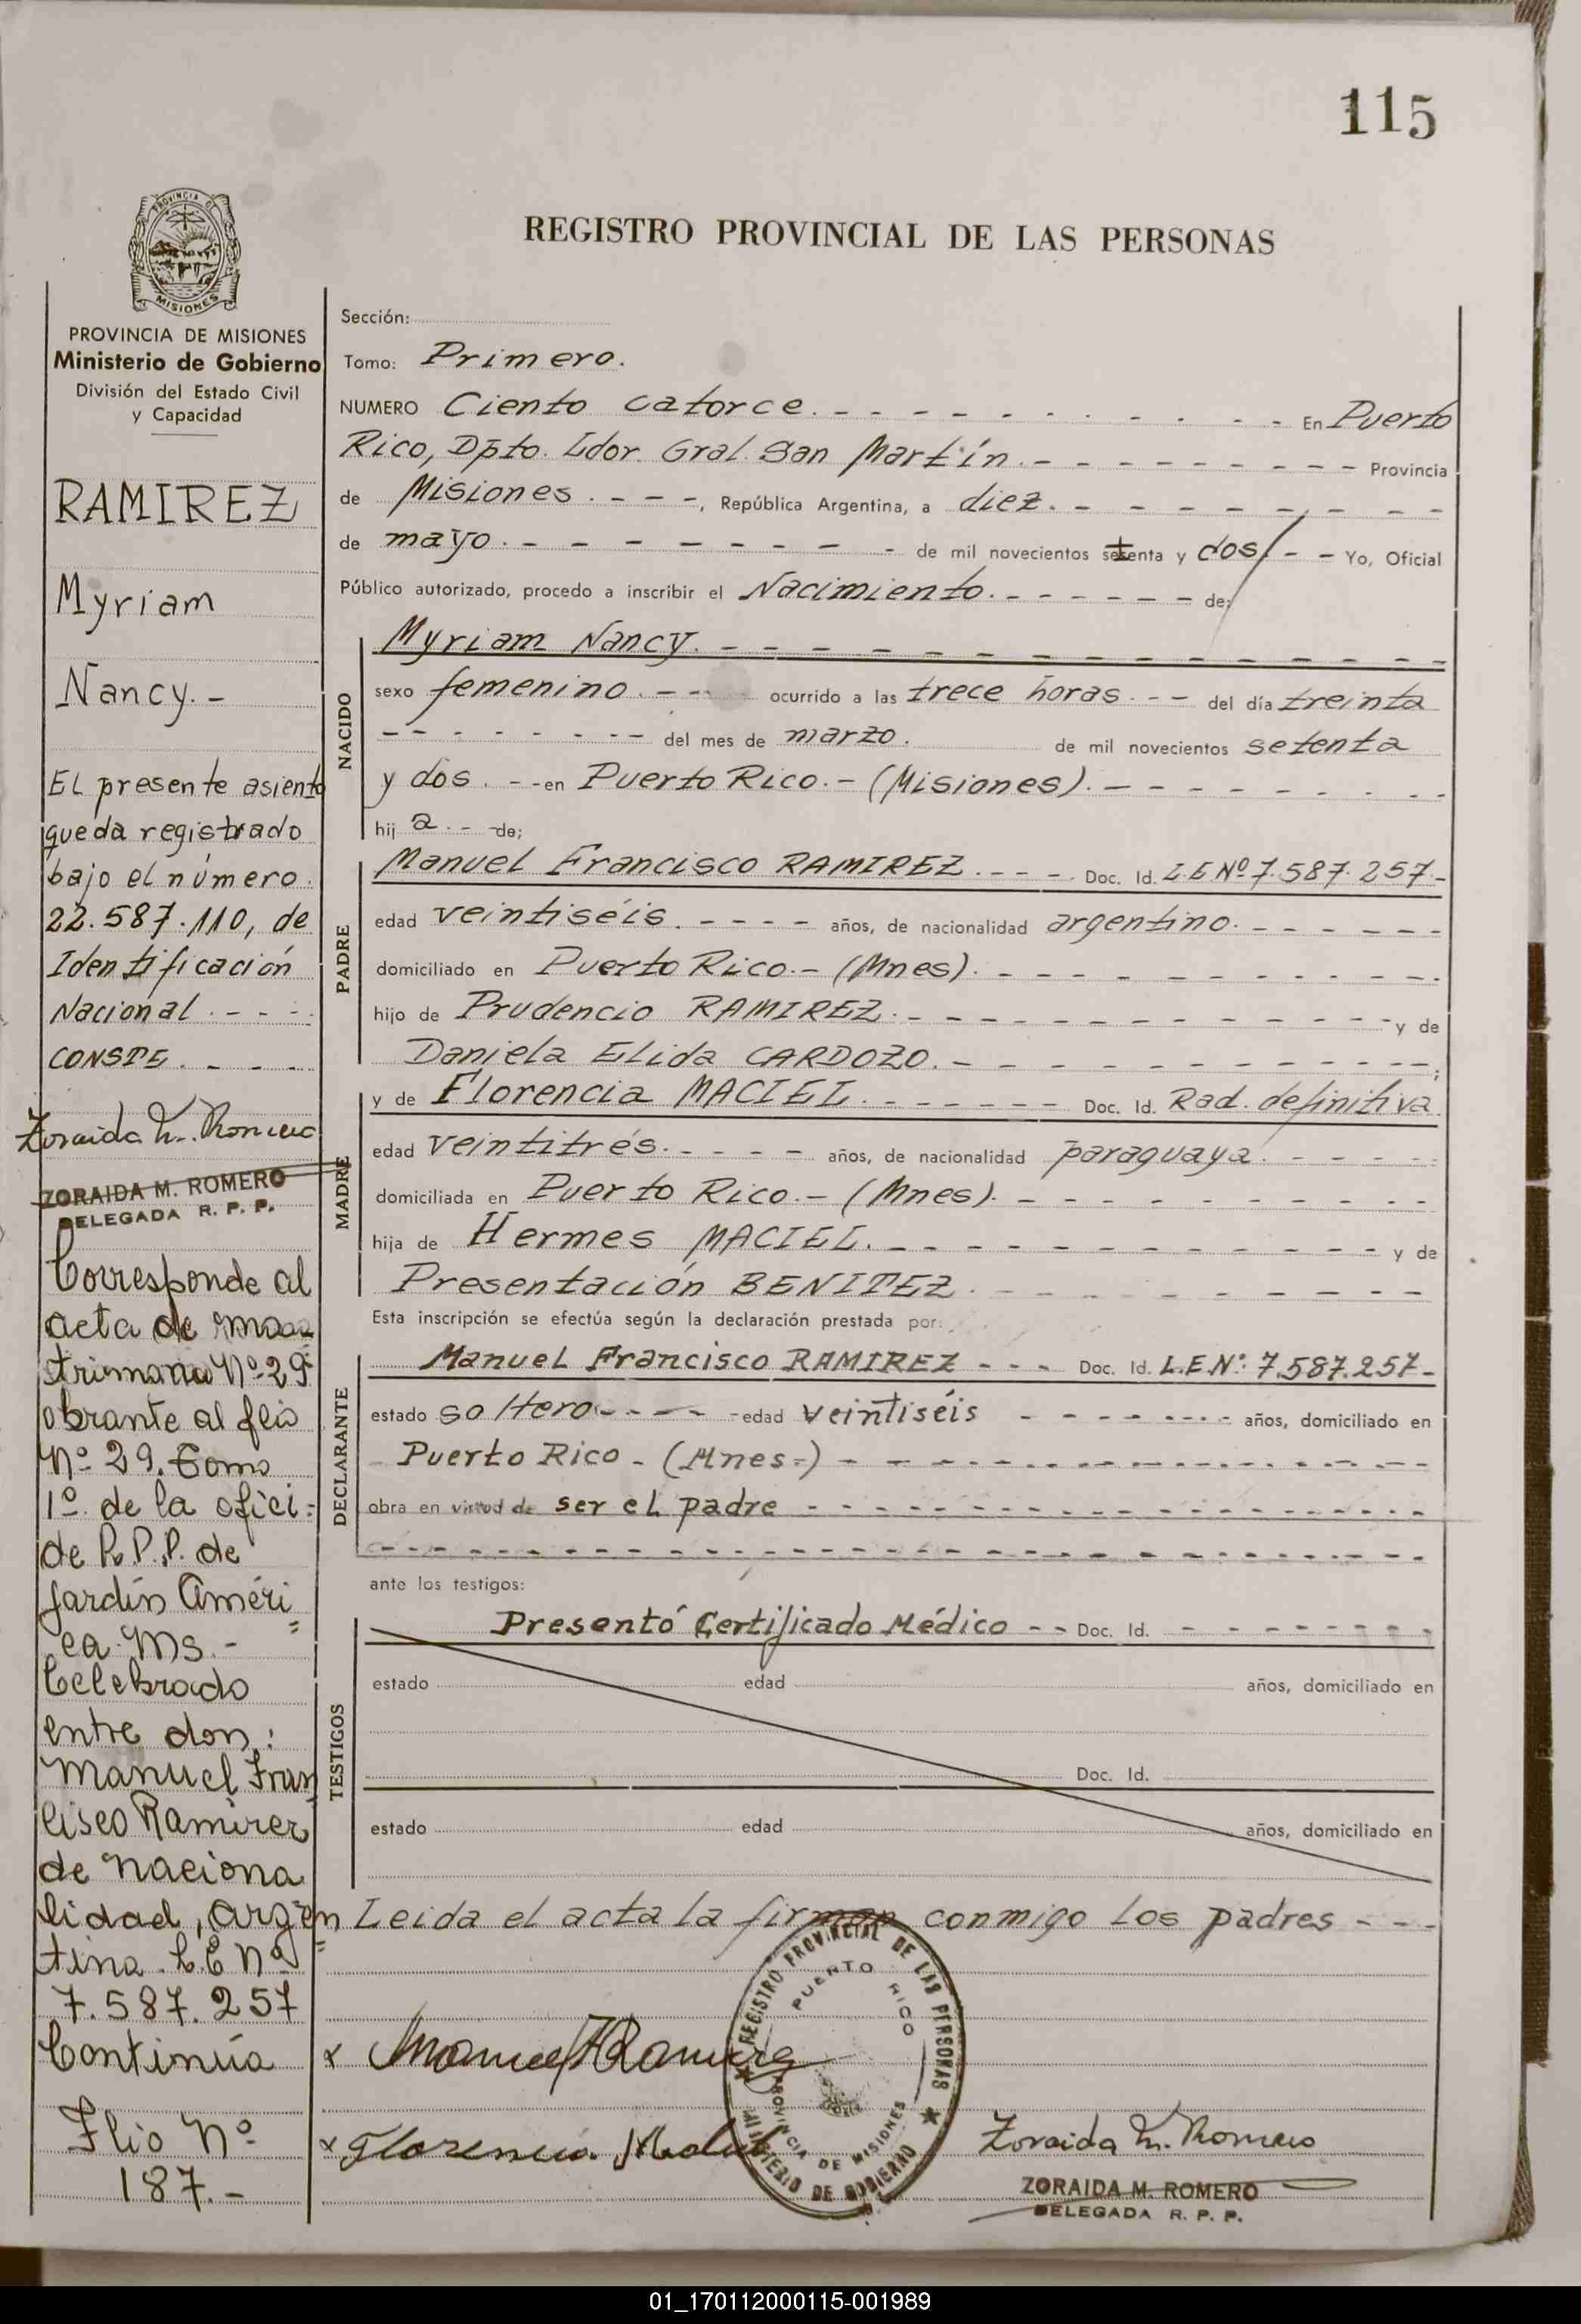 115
PROVINCIA DE
MISIONES
REGISTRO PROVINCIAL DE LAS PERSONAS
PROVINCIA DE MISIONES
Ministerio de Gobierno
División del Estado Civil
y Capacidad
RAMIREZ
Myriam
Nancy.-
El presente asiento
queda registrado
bajo el número
22.587.110, de
Identificación
Nacional.---
CONSTE.---
Zoraida M. Romero
ZORAIDA M. ROMERO
DELEGADA R. P. P.
Corresponde al
acta de ma=
trimonio Nº 29
obrante al flio
Nº 29. Tomo
1º de la ofici=
de R.P.P. de
Jardín Améri=
ca. Ms.-
Celebrado
entre don:
Manuel Fran=
cisco Ramirez
de naciona
lidad, argen=
tina. L.E Nº
7.587.257
Continúa
Flio Nº
187.-
Sección:
Tomo: Primero.
NUMERO Ciento catorce.- - - - - - - - - En Puerto
Rico, Dpto. Ldor. Gral. San Martín.- - - - - - - - - Provincia
de Misiones.- - -, República Argentina, a diez.- - - - - - - -
de mayo.- - - - - - - - de mil novecientos setenta y dos/- - Yo, Oficial
Público autorizado, procedo a inscribir el Nacimiento.- - - - - - de;
NACIDO
Myriam Nancy.- - - - - - - - - - - - - -
sexo femenino.- - - ocurrido a las trece horas.- - - del día treinta
- - - - - - - - del mes de marzo. de mil novecientos setenta
y dos.- - en Puerto Rico.- (Misiones).- - - - - - - -
hij a.- - de;
PADRE
Manuel Francisco RAMIREZ.- - - - Doc. Id. L.E Nº 7.587.257.-
edad veintiséis.- - - - años, de nacionalidad argentino.- - - - - -
domiciliado en Puerto Rico.- (Mnes).- - - - - - - - - -
hijo de Prudencio RAMIREZ.- - - - - - - - - - - y de
Daniela Elida CARDOZO.- - - - - - - - - - - ;
MADRE
y de Florencia MACIEL.- - - - - - - Doc. Id. Rad. definitiva.
edad veintitrés.- - - - años, de nacionalidad paraguaya.- - - - -
domiciliada en Puerto Rico.- (Mnes).- - - - - - - - - -
hija de Hermes MACIEL.- - - - - - - - - - - y de
Presentación BENITEZ.- - - - - - - - - -
Esta inscripción se efectúa según la declaración prestada por:
DECLARANTE
Manuel Francisco RAMIREZ - - - Doc. Id. L.E Nº: 7.587.257-
estado soltero- - - - edad veintiséis - - - - - - - - años, domiciliado en
Puerto Rico - (Mnes=) - - - - - - - - - - - - - -
obra en virtud de ser el padre - - - - - - - - - - - - - - -
- - - - - - - - - - - - - - - - - - - - - - - -
ante los testigos:
TESTIGOS
Presentó Certificado Médico - - Doc. Id. - - - - - - - -
estado edad años, domiciliado en
Doc. Id.
estado edad años, domiciliado en
Leida el acta la firman conmigo los padres - - -
REGISTRO PROVINCIAL DE LAS PERSONAS
PUERTO RICO
PROVINCIA DE MISIONES
MINISTERIO DE GOBIERNO
x Manuel F Ramirez
x Florencia Maciel
Zoraida M. Romero
ZORAIDA M. ROMERO
DELEGADA R. P. P.
01_170112000115-001989